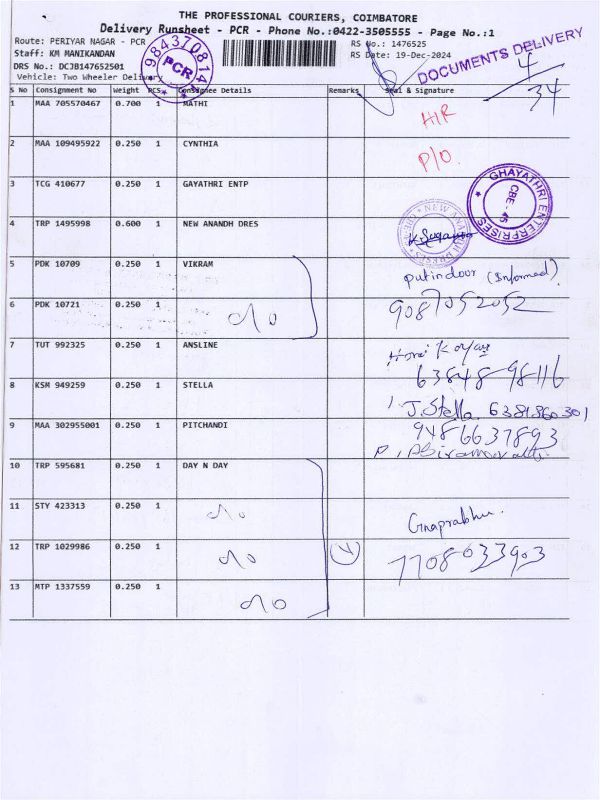 THE PROFESSIONAL COURIERS, COIMBATORE
Delivery Runsheet - PCR - Phone No.:0422-3505555 - Page No.:1
Route: PERIYAR NAGAR - PCR RS No.: 1476525
Staff: KM MANIKANDAN RS Date: 19-Dec-2024
DRS No.: DCJB147652501
Vehicle: Two Wheeler Delivery
984370814
PCR
DOCUMENTS DELIVERY
4
34
S No Consignment No Weight PCS Consignee Details Remarks Seal & Signature
1 MAA 705570467 0.700 1 MATHI H/R
2 MAA 109495922 0.250 1 CYNTHIA P/O.
3 TCG 410677 0.250 1 GAYATHRI ENTP
GHAYATHRI ENTERPRISES
CBE - 45
4 TRP 1495998 0.600 1 NEW ANANDH DRES
5 PDK 10709 0.250 1 VIKRAM put indoor (Informed)
6 PDK 10721 0.250 1 9087052052
7 TUT 992325 0.250 1 ANSLINE
63848 98116
8 KSM 949259 0.250 1 STELLA J. Stella 6381860301
9 MAA 302955001 0.250 1 PITCHANDI 9486637893
10 TRP 595681 0.250 1 DAY N DAY
11 STY 423313 0.250 1 Gnaprabhu.
12 TRP 1029986 0.250 1 7708033903
13 MTP 1337559 0.250 1